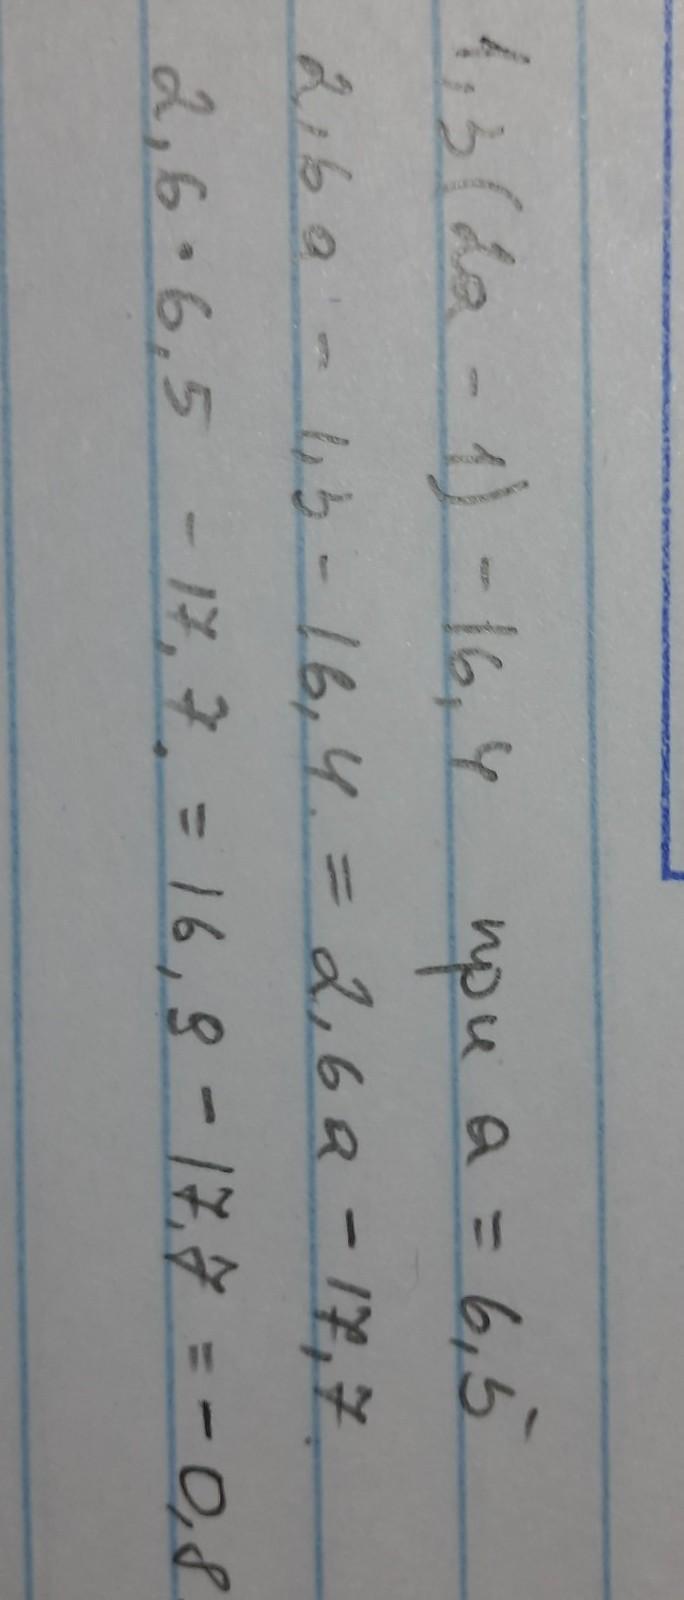 1,3(2a - 1) - 16,4 при a = 6,5
2,6a - 1,3 - 16,4 = 2,6a - 17,7
2,6 • 6,5 - 17,7. = 16,9 - 17,7 = - 0,8